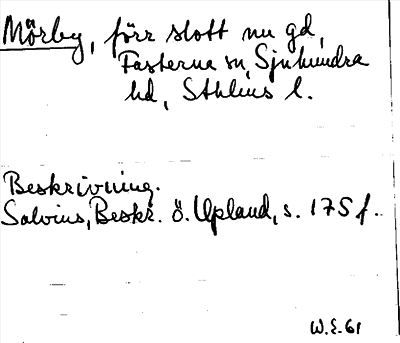 Mörby, förr slott nu gd,
Fasterna sn, Sjuhundra
hd, Sthlms l.
Beskrivning.
Salvius, Beskr. ö. Upland, s. 175 f.
W.E. 61